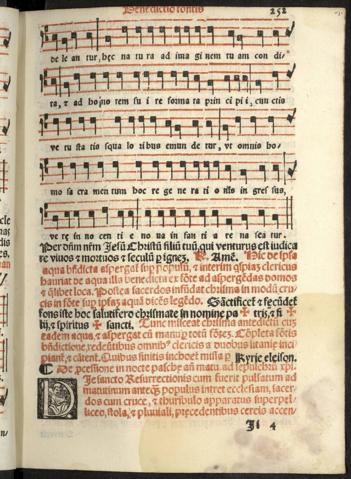 Benedictio fontis 252
de le an tur, hęc na tu ra ad ima gi nem tu am con di⸗
ta, ⁊ ad ho no rem su i re forma ta prin ci pi i, cun ctis
ve tu sta tis squa lo ribus emun de tur, vt omnis ho⸗
mo sa cra men tum hoc re ge ne ra ti o nis in gres sus,
ve rę in no cen ti ę no ua in fan ti a re na sca tur.
Per dñm nr̃m Jesũ Christũ filiũ tuũ, qui venturus est iudica
re viuos ⁊ mortuos ⁊ seculũ ꝑ ignẽ. ℟. Amẽ. Hic de ipsa
aqua bñdicta aspergat sup populũ, ⁊ interim quispiã clericus
hauriat de aqua illa benedicta ex fõte ad aspergẽdas domos
⁊ q̃libet loca. Postea sacerdos infũdat chrisma in modũ cru⸗
cis in fõte sup ipsaz aquã dicẽs legẽdo. Sãctificet̃ ⁊ fecũdet̃
fons iste hoc salutifero chrismate in nomine pa ✠ tris, ⁊ fi ✠
lij, ⁊ spiritus ✠ sancti. Tunc misceat chrisma antedictũ cuz
eadem aqua, ⁊ aspergat cũ manu ꝑ totũ fõtez. Cõpleta fõtis
bñdictione, redeuntibus omnibꝰ clericis a duobus litanię inci
piant̃, ⁊ cãtent̃. Quibus finitis inchoet̃ missa ꝑ Kyrie eleison.
¶ De ꝓcessione in nocte paschę añ matu. ad sepulchrũ xp̃i.
DJe sancto Resurrectionis cum fuerit pulsatum ad
matutinum anteq̃ populus intret ecclesiam, sacer⸗
dos cum cruce, ⁊ thuribulo apparatus superpel⸗
liceo, stola, ⁊ pluuiali, pręcedentibus cereis accen⸗
Ji 4